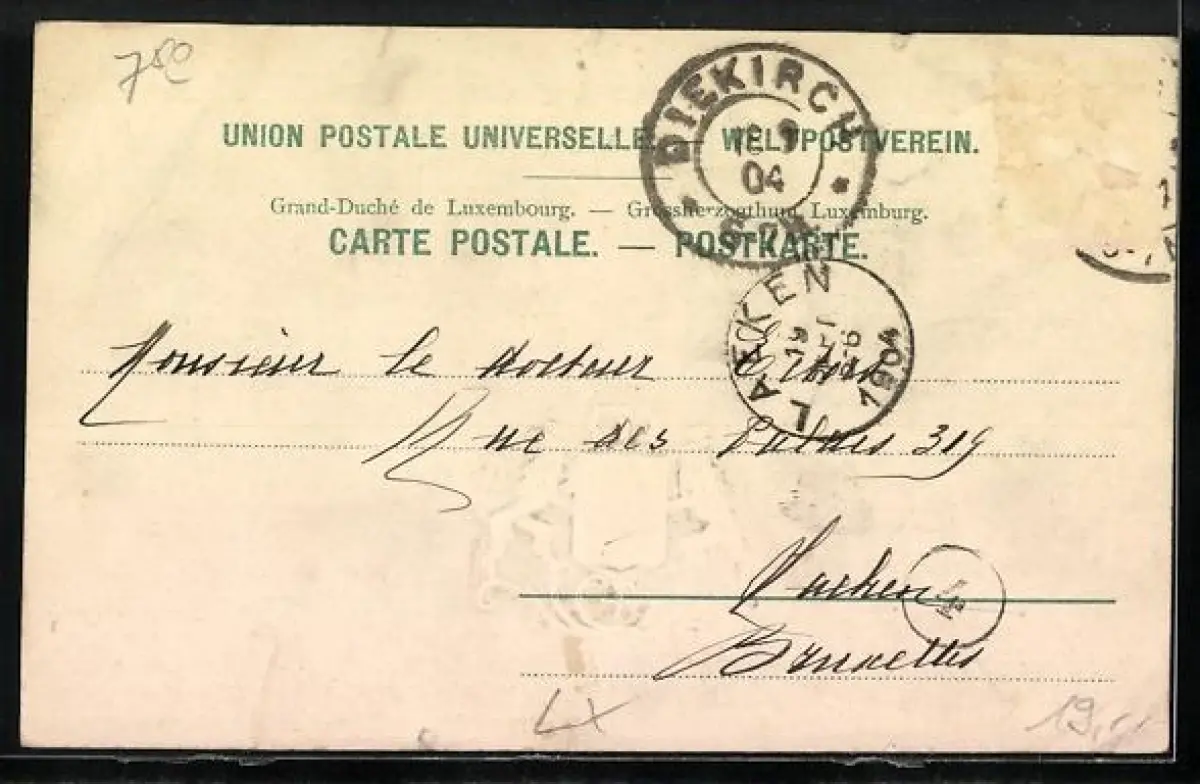 750
UNION POSTALE UNIVERSELLE. — WELTPOSTVEREIN.
Grand-Duché de Luxembourg. — Grossherzogthum Luxemburg.
CARTE POSTALE. — POSTKARTE.
DIEKIRCH
04
LAEKEN
1904
Monsieur le docteur
Rue des Palais 319
Laeken
4
Bruxelles
LX